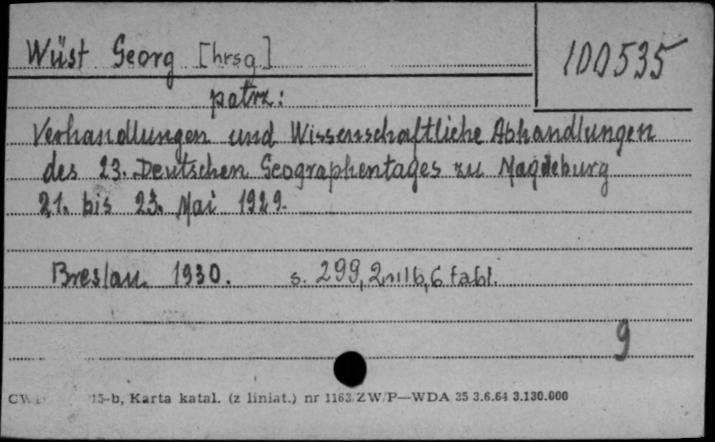 Wüst Georg [hrsg]
100535
patrz:
Verhandlungen und Wissenschaftliche Abhandlungen
des 23. Deutschen Geographentages zu Magdeburg
21. bis 23. Mai 1929.
Breslau 1930. s. 299, 2 nlb, 6 tabl.
9
15-b, Karta katal. (z liniat.) nr 1163 ZW/P—WDA 35 3.6.64 3.130.000